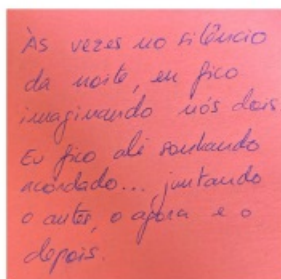 Às vezes no silêncio
da noite, eu fico
imaginando nós dois
Eu fico ali sonhando
acordado... juntando
o antes, o agora e o
depois.